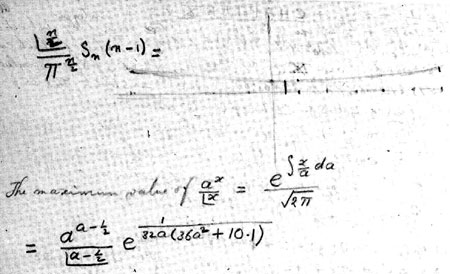 ⌊n/2 / π^(n/2) S_n (n-1) =
The maximum value of a^x / ⌊x = e^(∫ x/a da) / √2π
= a^(a-½) / ⌊a-½ e^(1 / 32a(36a²+10·1))